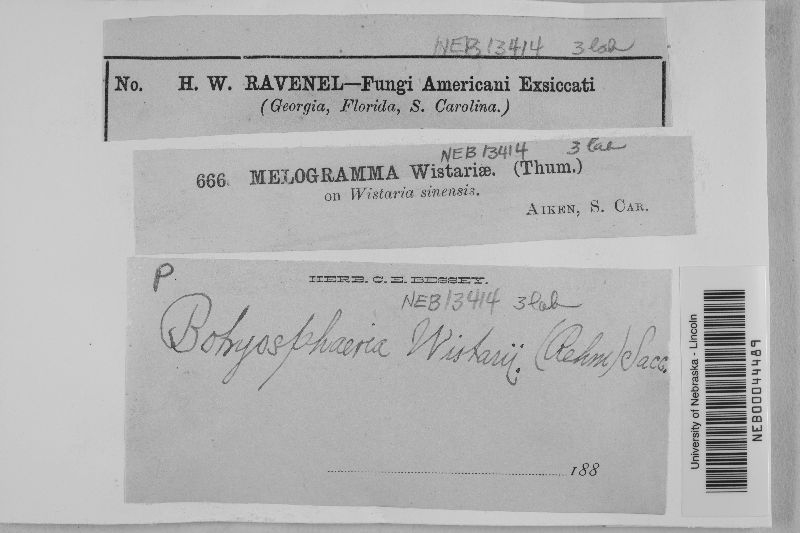 NEB 13414 3 lab
No. H. W. RAVENEL—Fungi Americani Exsiccati
(Georgia, Florida, S. Carolina.)
NEB 13414 3 lab
666. MELOGRAMMA Wistariæ. (Thum.)
on Wistaria sinensis.
AIKEN, S. CAR.
P.
HERB. C. E. BESSEY.
NEB 13414 3 lab
Botryosphaeria Wistarij. (Rehm) Sacc.
188
University of Nebraska - Lincoln
NEB00044489